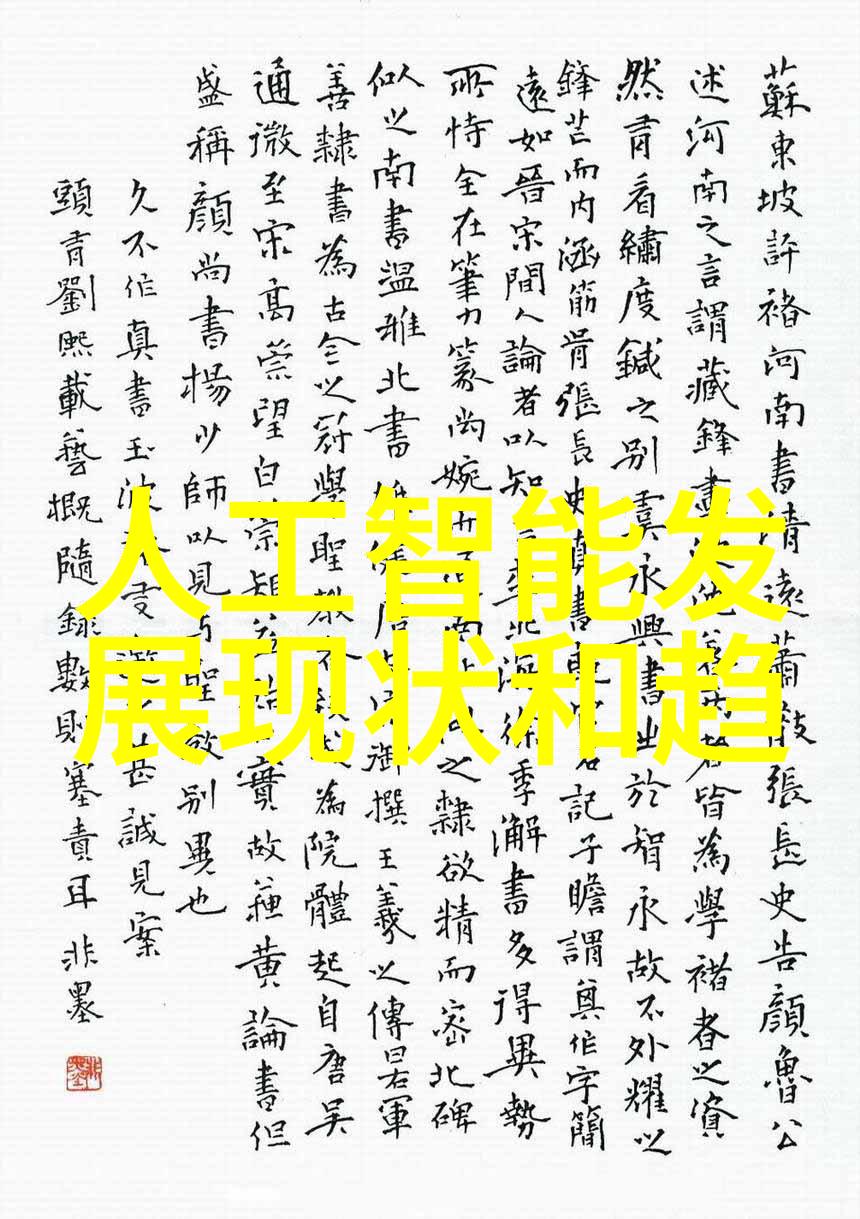 人工智能发
展现状和趋
蘇東坡評褚河南書清遠蕭散張長史告顏魯公
述河南之言謂藏鋒畫皆為學褚者之資
然有看繡度鍼之別虞永興書出於智永故不外耀以
鋒芒而內涵筋骨張長史真書記子瞻謂其作字簡
遠如晉宋間人論者以知徐季澥書多得異勢
所恃全在筆力篆尚婉之隸欲精而密北碑
似之南書溫雅北書雄健唐御撰王羲之傳右軍
善隸書為古今之冠學聖教為院體起自唐吳
通微至宋高崇望白實故蘇黃論書但
盛稱顏尚書楊少師以見與聖教別異也
久不作真書玉波甚誠見案
頭有劉熙載藝概隨錄數則塞責耳非墨